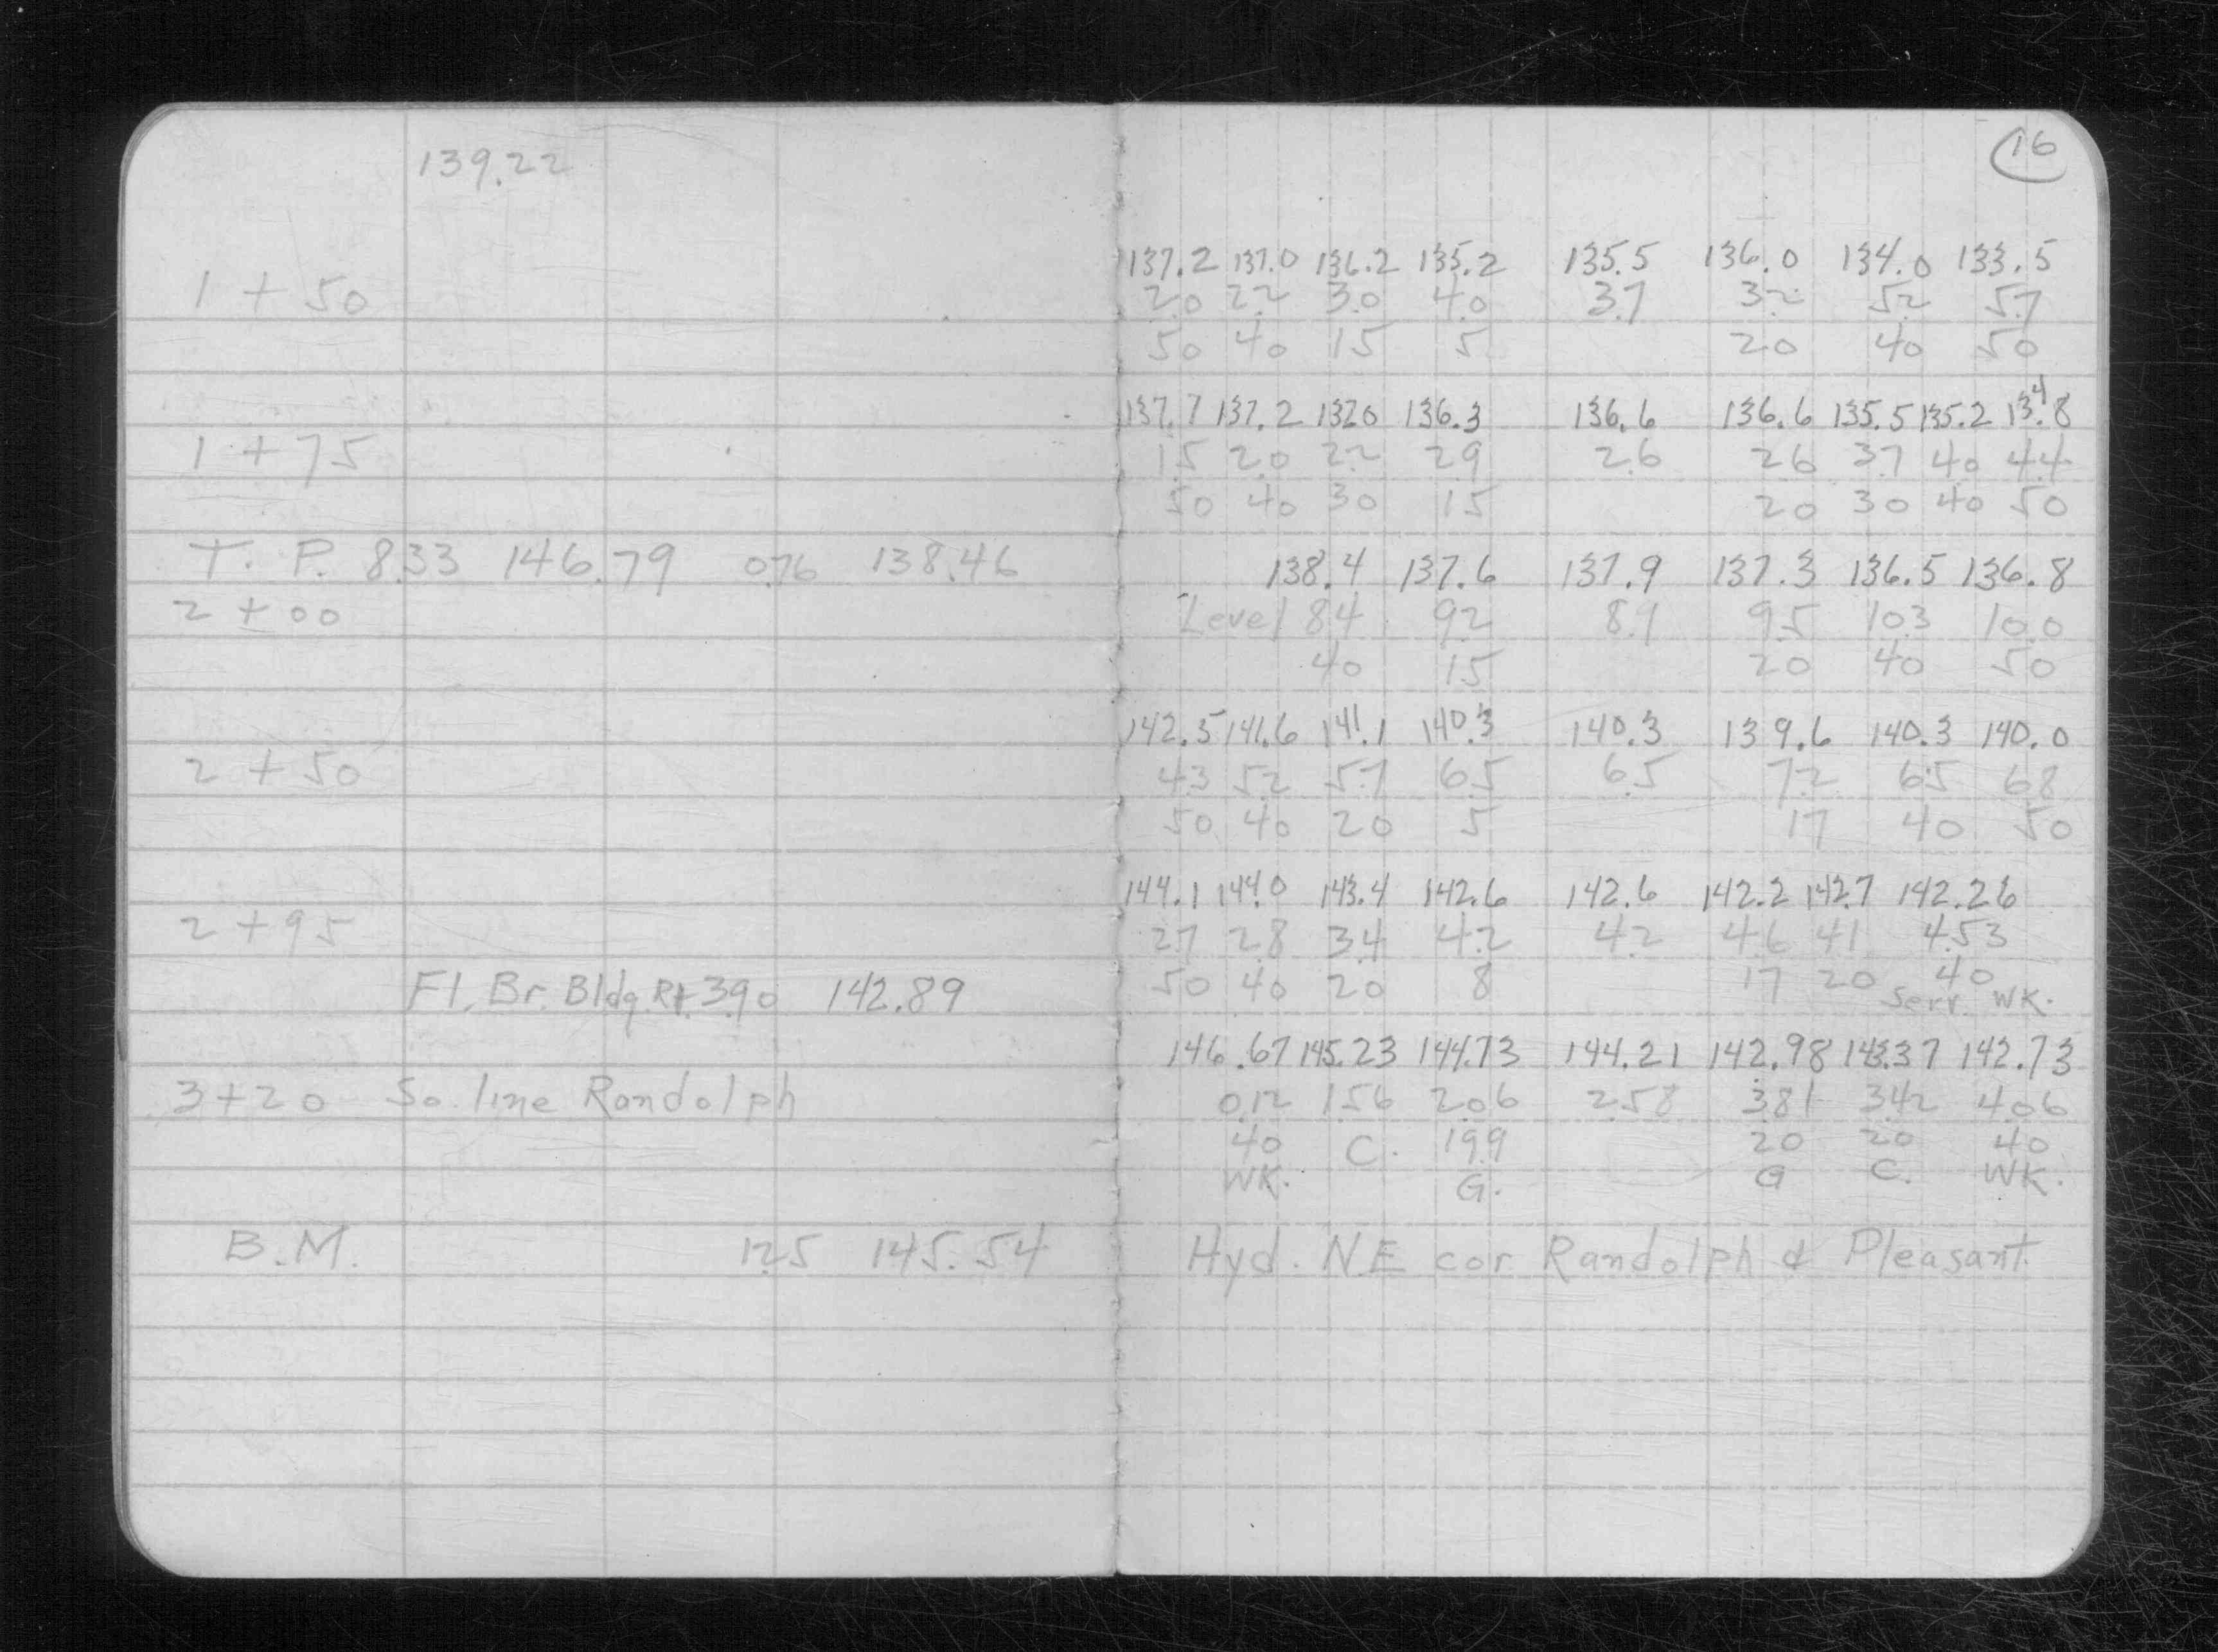 16
139.22
137.2 137.0 136.2 135.2 135.5 136.0 134.0 133.5
1 + 50 2.0 2.2 3.0 4.0 3.7 3.2 5.2 5.7
50 40 15 5 20 40 50
137.7 137.2 137.0 136.3 136.6 136.6 135.5 135.2 134.8
1 + 75 1.5 2.0 2.2 2.9 2.6 2.6 3.7 4.0 4.4
50 40 30 15 20 30 40 50
T. P. 8.33 146.79 0.76 138.46 138.4 137.6 137.9 137.3 136.5 136.8
2 + 00 Level 8.4 9.2 8.9 9.5 10.3 10.0
40 15 20 40 50
142.5 141.6 141.1 140.3 140.3 139.6 140.3 140.0
2 + 50 4.3 5.2 5.7 6.5 6.5 7.2 6.5 6.8
50 40 20 5 17 40 50
144.1 144.0 143.4 142.6 142.6 142.2 142.7 142.26
2 + 95 2.7 2.8 3.4 4.2 4.2 4.6 4.1 4.53
Fl. Br. Bldg. Rt. 3.90 142.89 50 40 20 8 17 20 40
Serv. WK.
146.67 145.23 144.73 144.21 142.98 143.37 142.73
3+20 So. line Randolph 0.12 1.56 2.06 2.58 3.81 3.42 4.06
40 C. 19.9 20 20 40
WK. G. G C. WK.
B.M. 1.25 145.54 Hyd. N.E cor Randolph & Pleasant.